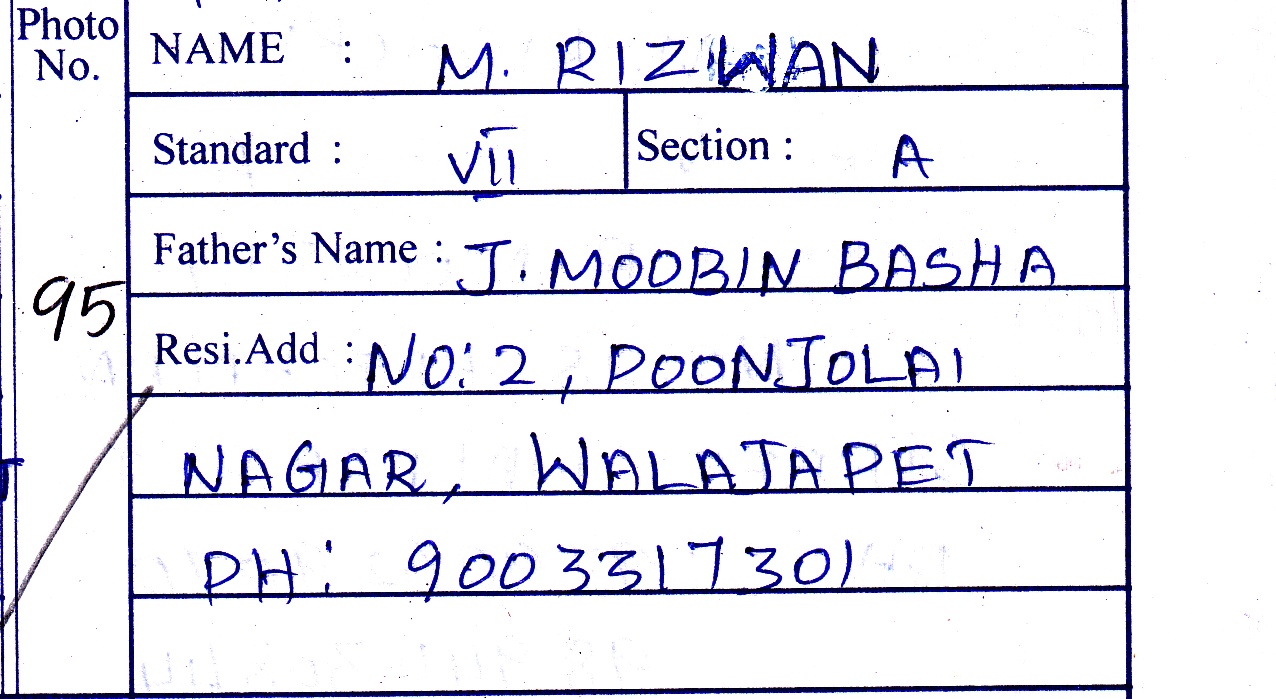 Photo No.
NAME : M. RIZWAN
Standard : VII Section : A
Father's Name : J. MOOBIN BASHA
95
Resi.Add : NO: 2, POONJOLAI
NAGAR, WALAJAPET
PH: 9003317301